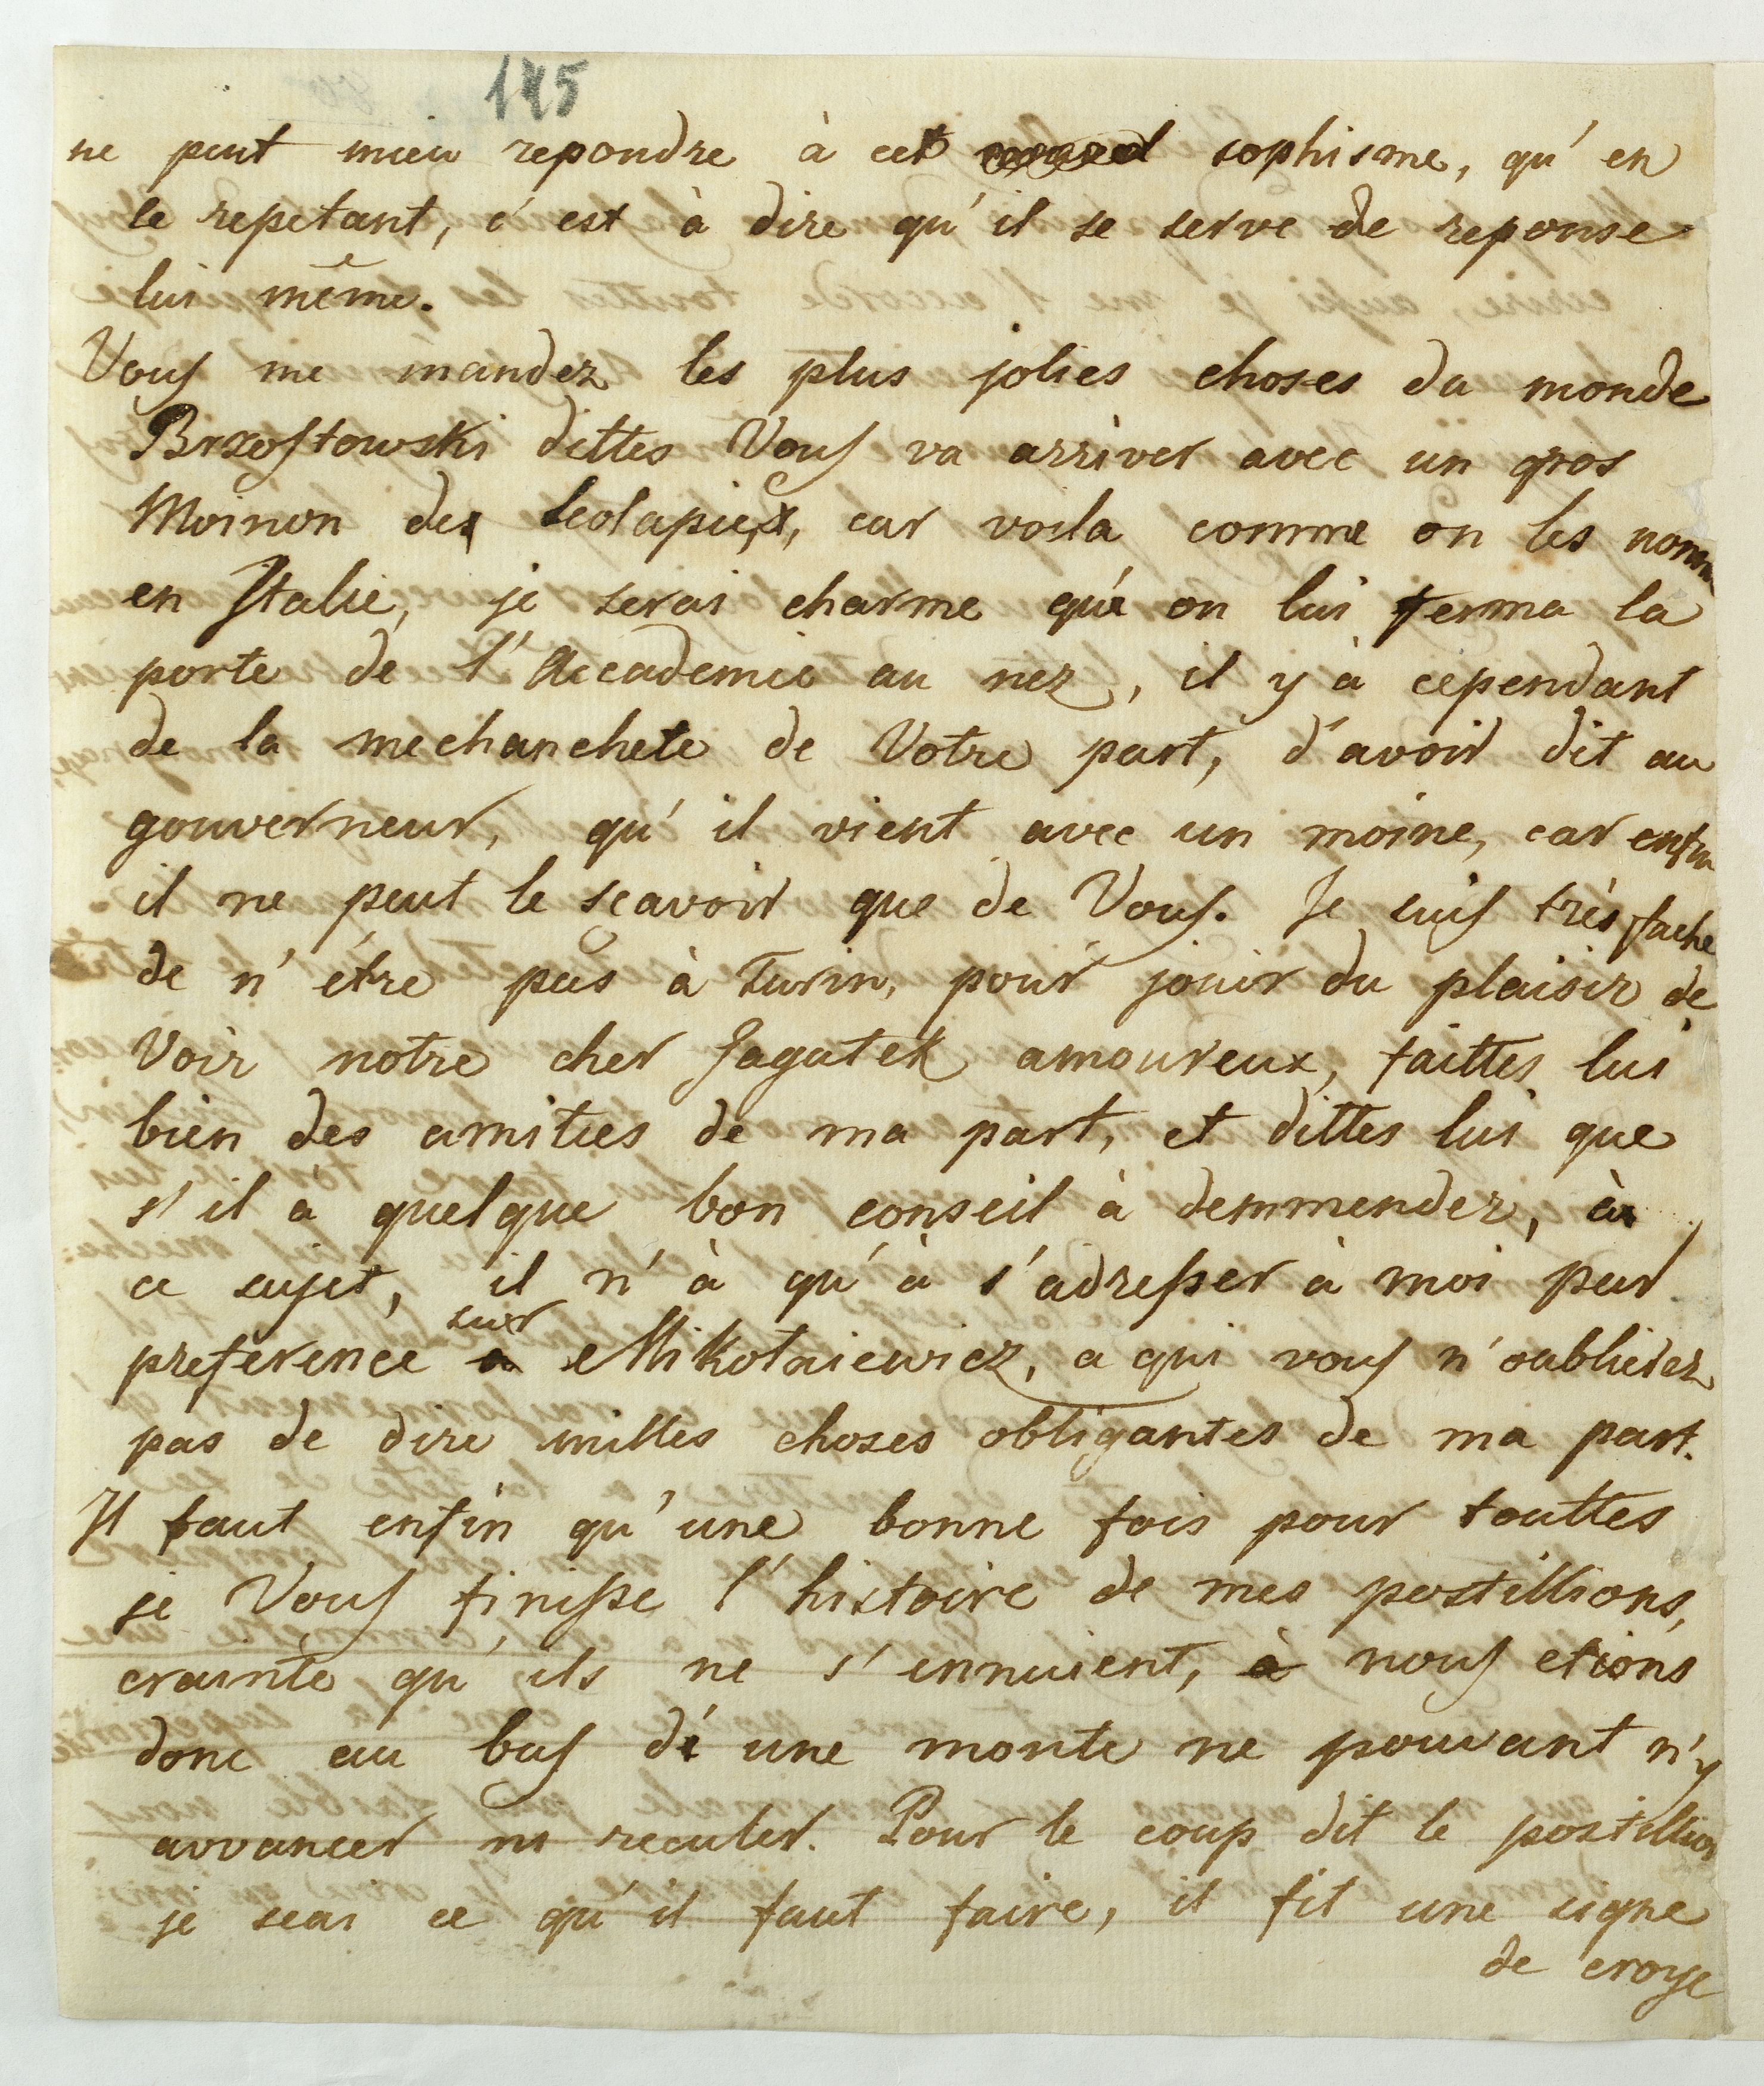 145
ne peut mieu repondre à cet sophisme, qu'en
le repetant, c'est à dire qu'il se serve de reponse
lui même.
Vous me mandez les plus jolies choses du monde
Brzostowski dittes Vous va arriver avec un gros
Moinon des Scolapies, car voila comme on les nomme
en Italie, je serai charme qu'on lui ferma la
porte de l'Accademie au nez, il y à cependant
de la mechanchete de Votre part, d'avoir dit au
gouverneur, qu'il vient avec un moine, car enfin
il ne peut le scavoir que de Vous. Je suis très fache
de n'étre pas à Turin, pour jouir du plaisir de
Voir notre cher Jagatek amoureux, faittes lui
bien des amities de ma part, et dittes lui que
s'il à quelque bon conseil à demmender, à
ce sujet, il n'à qu'à s'adresser à moi par
preference sur Mikołaiewicz, a qui vous n'oublierez
pas de dire milles choses obligantes de ma part.
Il faut enfin qu'une bonne fois pour touttes
je Vous finisse l'histoire de mes postillions,
crainte qu'ils ne s'ennuient, nous etions
donc au bas d'une monte ne pouvant n'y
avvancer ni reculer. Pour le coup dit le postillion
je scai ce qu'il faut faire, il fit une signe
de croye